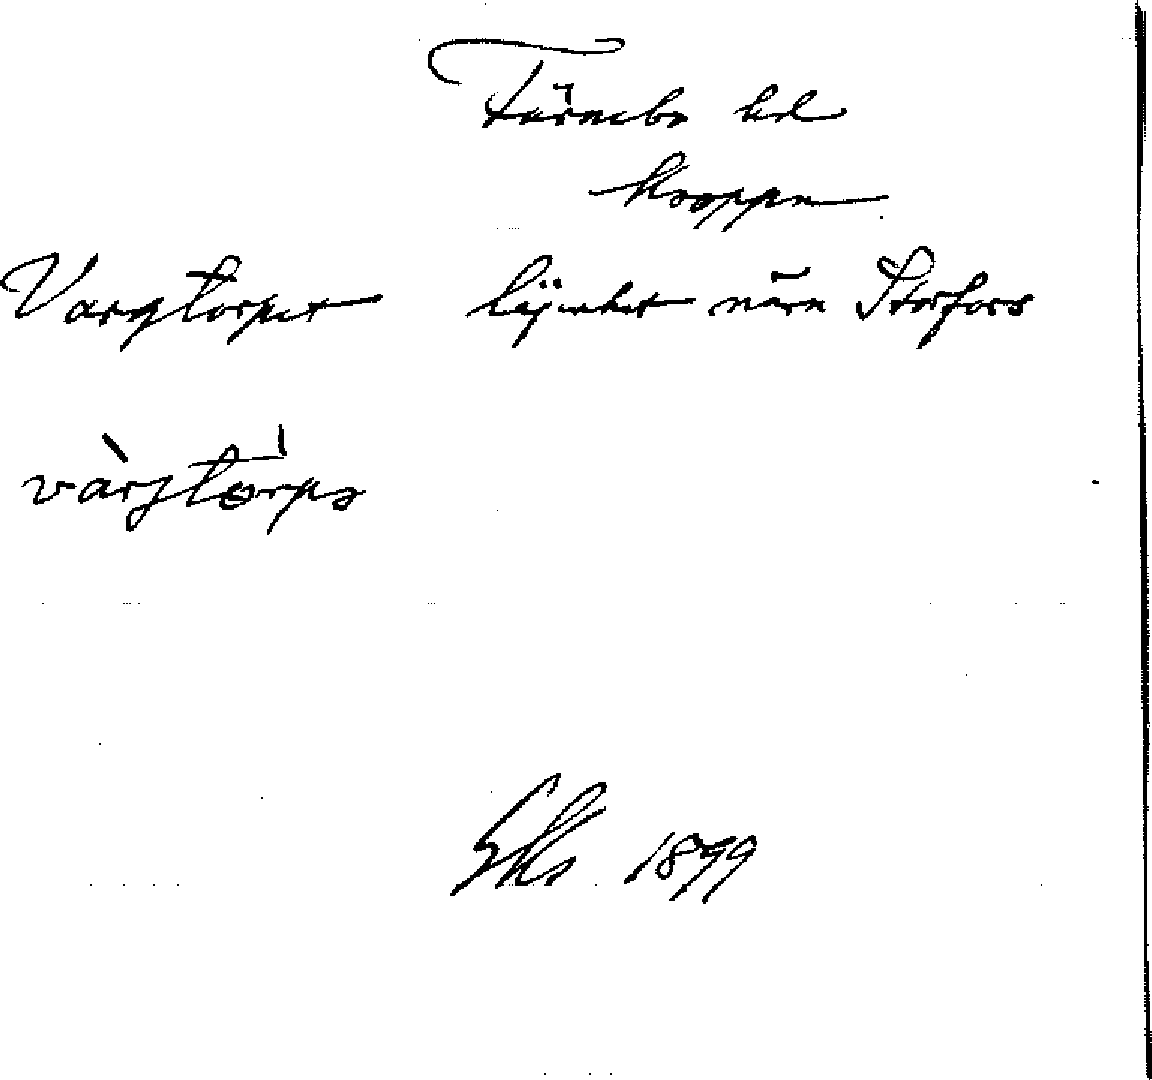 Färnebo hd
Kroppa
Vargtorpet lägenhet nära Storfors
vàrgtórpə
1899